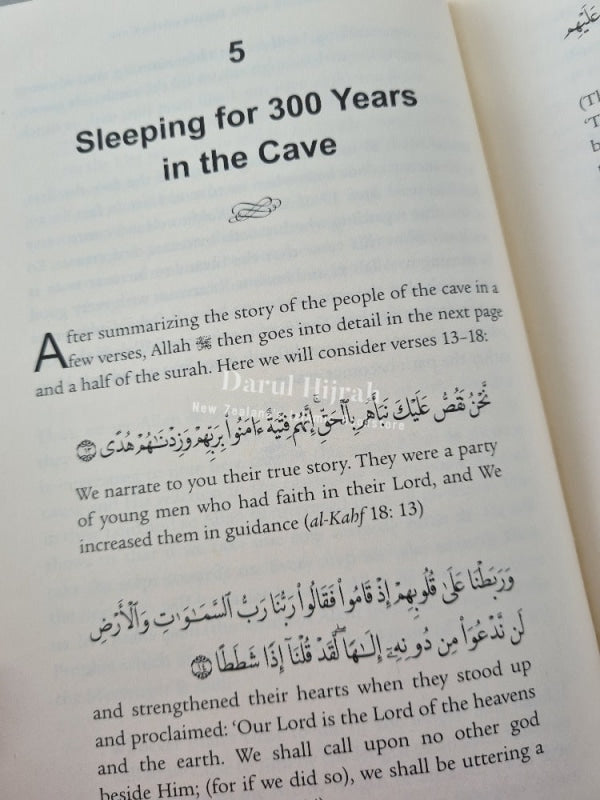 5
Sleeping for 300 Years
in the Cave
After summarizing the story of the people of the cave in a
few verses, Allah ﷻ then goes into detail in the next page
and a half of the surah. Here we will consider verses 13–18:
Darul Hijrah
نَّحْنُ نَقُصُّ عَلَيْكَ نَبَأَهُم بِٱلْحَقِّ ۚ إِنَّهُمْ فِتْيَةٌ ءَامَنُوا۟ بِرَبِّهِمْ وَزِدْنَـٰهُمْ هُدًى ١٣
We narrate to you their true story. They were a party
of young men who had faith in their Lord, and We
increased them in guidance (al-Kahf 18: 13)
وَرَبَطْنَا عَلَىٰ قُلُوبِهِمْ إِذْ قَامُوا۟ فَقَالُوا۟ رَبُّنَا رَبُّ ٱلسَّمَـٰوَٰتِ وَٱلْأَرْضِ
لَن نَّدْعُوَا۟ مِن دُونِهِۦٓ إِلَـٰهًا ۖ لَّقَدْ قُلْنَآ إِذًا شَطَطًا ١٤
and strengthened their hearts when they stood up
and proclaimed: ‘Our Lord is the Lord of the heavens
and the earth. We shall call upon no other god
beside Him; (for if we did so), we shall be uttering a
عَلَيْهِم